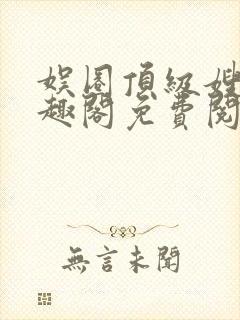 娱圈頂級嫂
趣閣免費閱
無言未聞